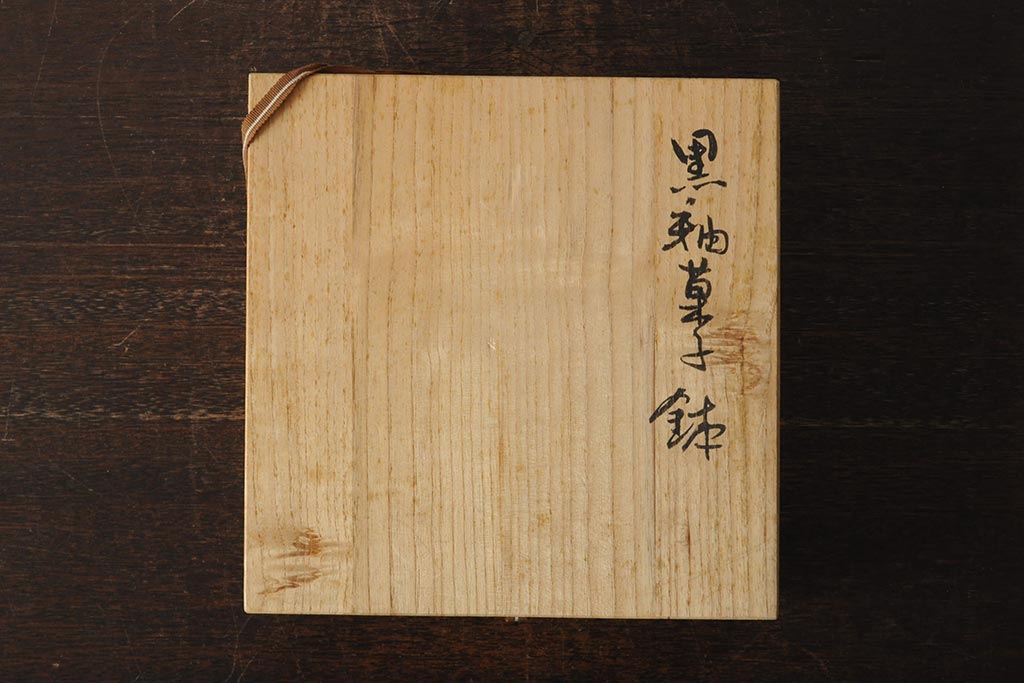 黒釉菓子鉢